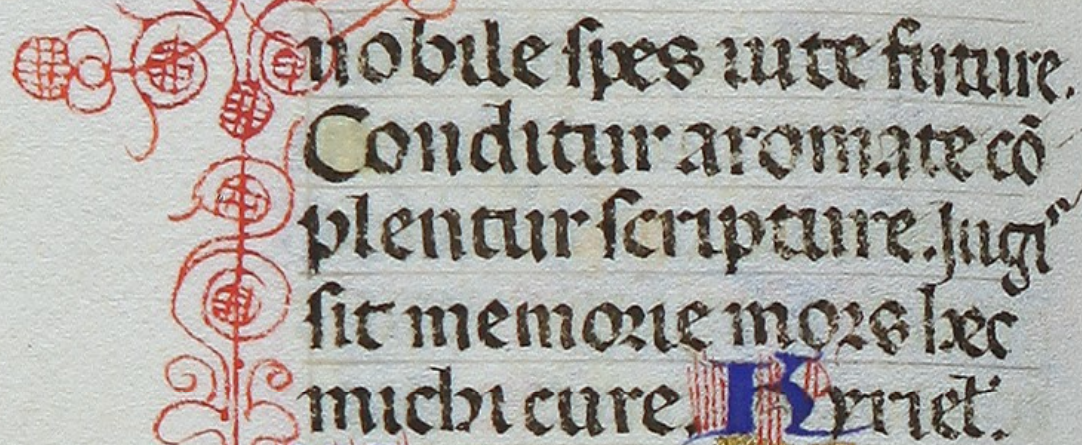 nobile spes uite future.
Conditur aromate cō
plentur scripture. Jugiˢ
sit memorie mors hec
michi cure. Kyriel'.